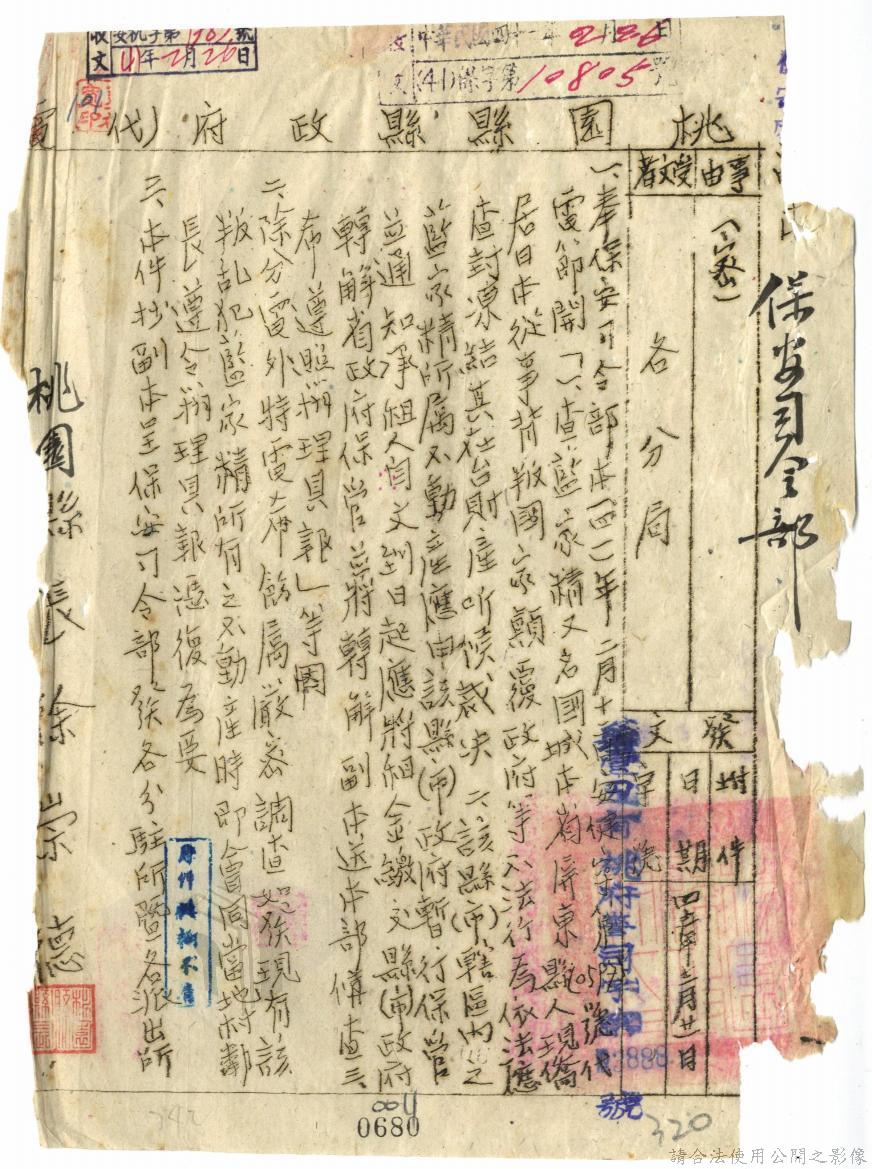 收文
安机字第1701號
41年2月26日
中華民國四十一年
(41)保字第10805號
桃園縣縣政府(代電
事由
受文者
(密)
各分局
保安司令部
發文
附件
日期
四一年二月廿一日
字號
號
一、奉保安司令部本(四一)年二月十
電節開「一、查藍家精又名國城本省屏東縣人現僑
居日本從事背叛國家顛覆政府等不法行為依法應
查封凍結其在台財產听候裁決二、該縣(市)轄區內之
藍家精所属不動產應由該縣(市)政府暫行保管
並通知承租人自文到日起應將租金繳交縣(市)政府
轉解省政府保管並將轉解副本送本部俻查三、
希遵照辦理具報」等因
二、除分電外特電希飭属嚴密調查如發現有該
叛乱犯藍家精所有之不動產時即會同當地村鄰
長遵令辦理具報憑復為要
三、本件抄副本呈保安司令部發各分駐所暨各派出所
桃園縣長徐崇德
0011
0680
320
請合法使用公開之影像